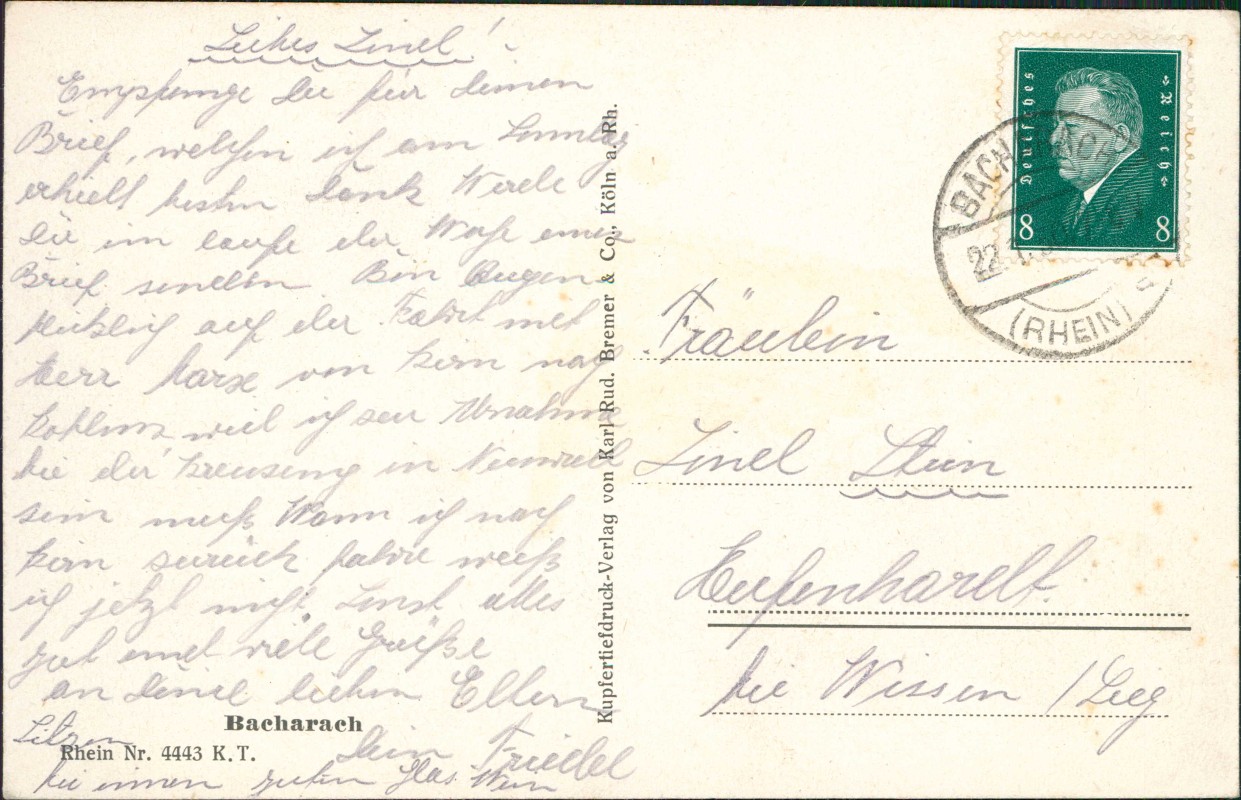 Liebes Linel!
Empfange Du für deinen
Brief, welchen ich am Samstag
erhielt besten Dank Werde
Dir im laufe der Woche einen
Brief senden Bin Augen-
blicklich auf der Fahrt mit
Herr Marx von Kirn nach
Koblenz weil ich zur Abnahme
bei der Kreuzung in Neuwied
sein muß Wann ich nach
Kirn zurück fahre weiß
ich jetzt nicht. Sonst alles
gut und viele Grüße
an deine lieben Eltern
Dein Friedel
Sitzen
bei einem guten Glas Wein
Bacharach
Rhein Nr. 4443 K.T.
Kupfertiefdruck-Verlag von Karl Rud. Bremer & Co., Köln a. Rh.
Deutsches Reich
8 8
BACHARACH
22
(RHEIN)
Fräulein
Linel Stein
Hufenhardt.
bei Wissen / Sieg